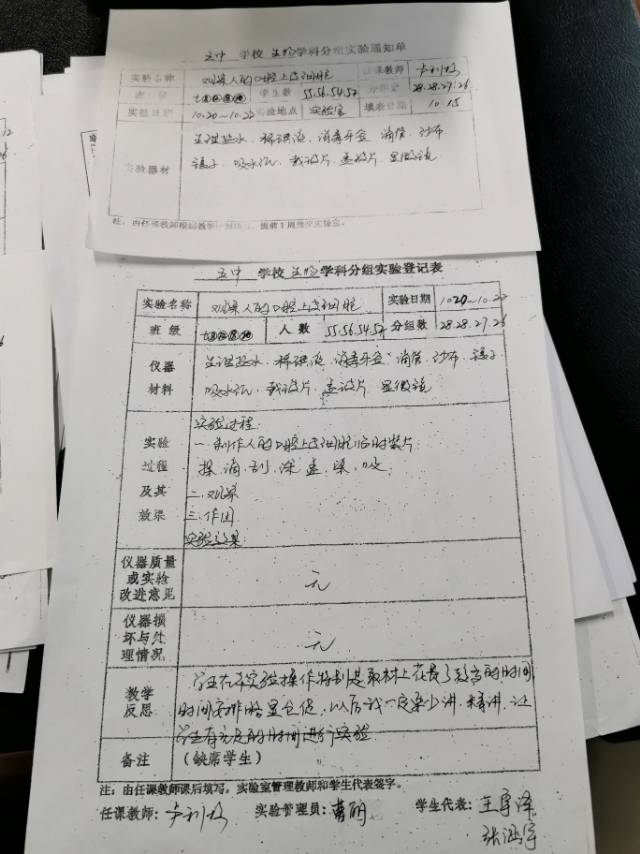 五中 学校 生物学科分组实验通知单
实验名称 观察人的口腔上皮细胞 任课教师
班级 学生数 55.56.54.52 分组数 28.28.27.26
实验日期 10.20~10.22 实验地点 实验室 填表日期 10.15
实验器材 生理盐水、稀碘液、消毒牙签、滴管、纱布
镊子、吸水纸、载玻片、盖玻片、显微镜
五中 学校 生物学科分组实验登记表
实验名称 观察人的口腔上皮细胞 实验日期 10.20~10.22
班级 人数 55.56.54.52 分组数 28.28.27.26
仪器材料 生理盐水、稀碘液、消毒牙签、滴管、纱布、镊子
吸水纸、载玻片、盖玻片、显微镜
实验过程及其效果 实验过程:
一.制作人的口腔上皮细胞临时装片
擦、滴、刮、涂、盖、染、吸
二.观察
三.作图
实验效果:
仪器质量或实验改进意见 无
仪器损坏与处理情况 无
教学反思 学生在本实验操作特别是取材上花费了较多的时间
时间安排略显仓促,以后我一定要少讲、精讲,让
学生有充足的时间进行实验
备注 (缺席学生)
注:由任课教师课后填写,实验室管理教师和学生代表签字。
任课教师: 实验管理员:曹丽 学生代表: